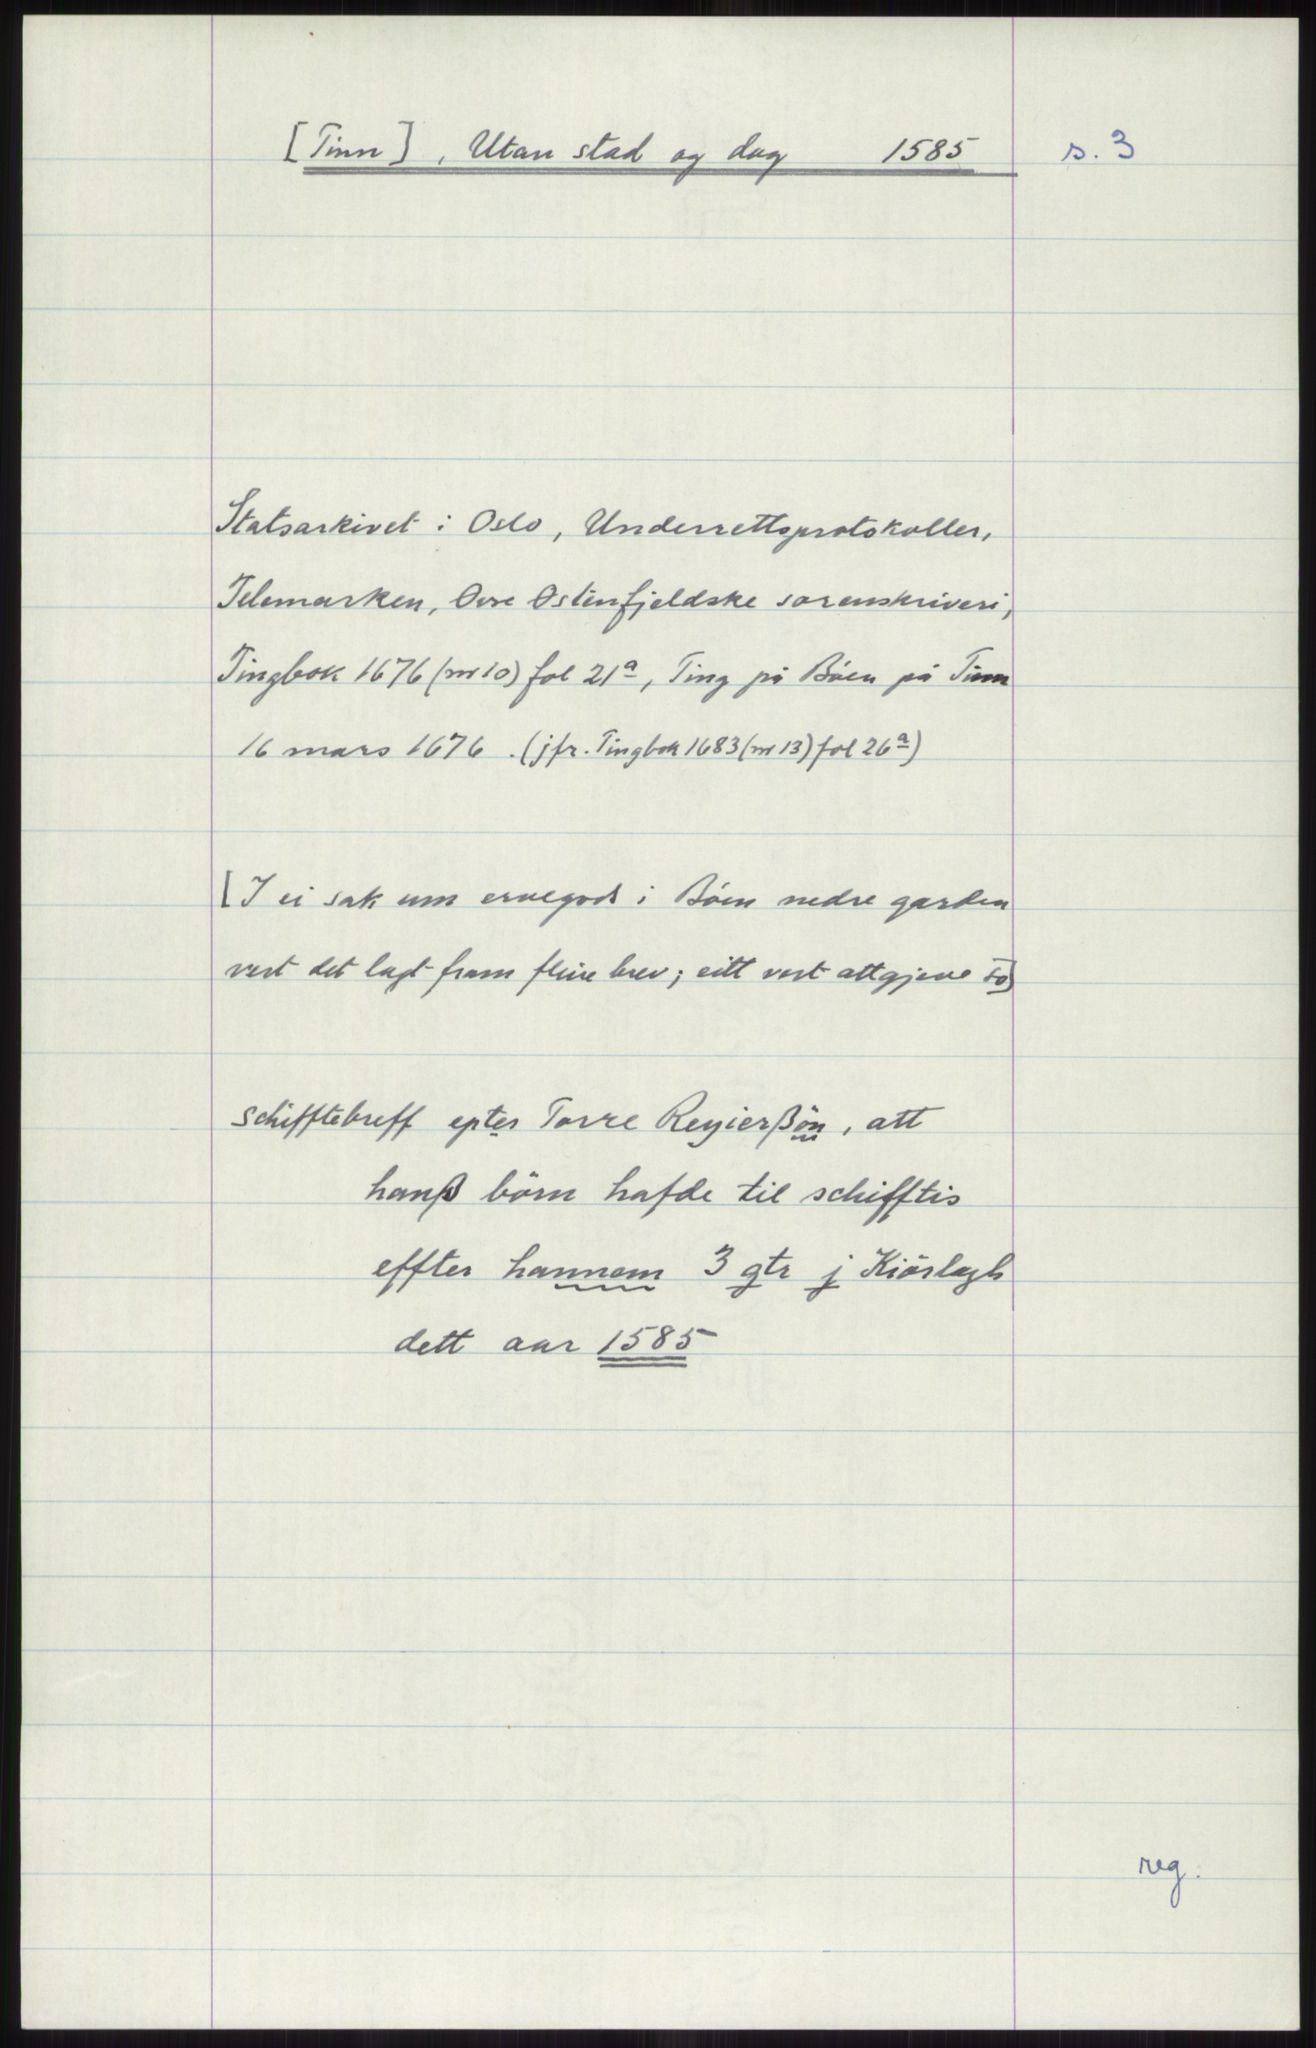 [Tinn], Utan stad og dag 1585 s. 3
Statsarkivet i Oslo, Underrettsprotokoller,
Telemarken, Øvre Østenfjeldske sorenskriveri,
Tingbok 1676 (nr 10) fol 21a, Ting på Bøen på Tinn
16 mars 1676. (jfr. Tingbok 1683 (nr 13) fol 26a)
[I ei sak um ervegods i Bøen nedre garden
vert det lagt fram fleire brev; eitt vert attgjeve so]
schifftebreff epter Torre Reyierßön, att
hanß börn hafde til schifftis
effter hannom 3 gtr j Kiörlagh
dett aar 1585
reg.